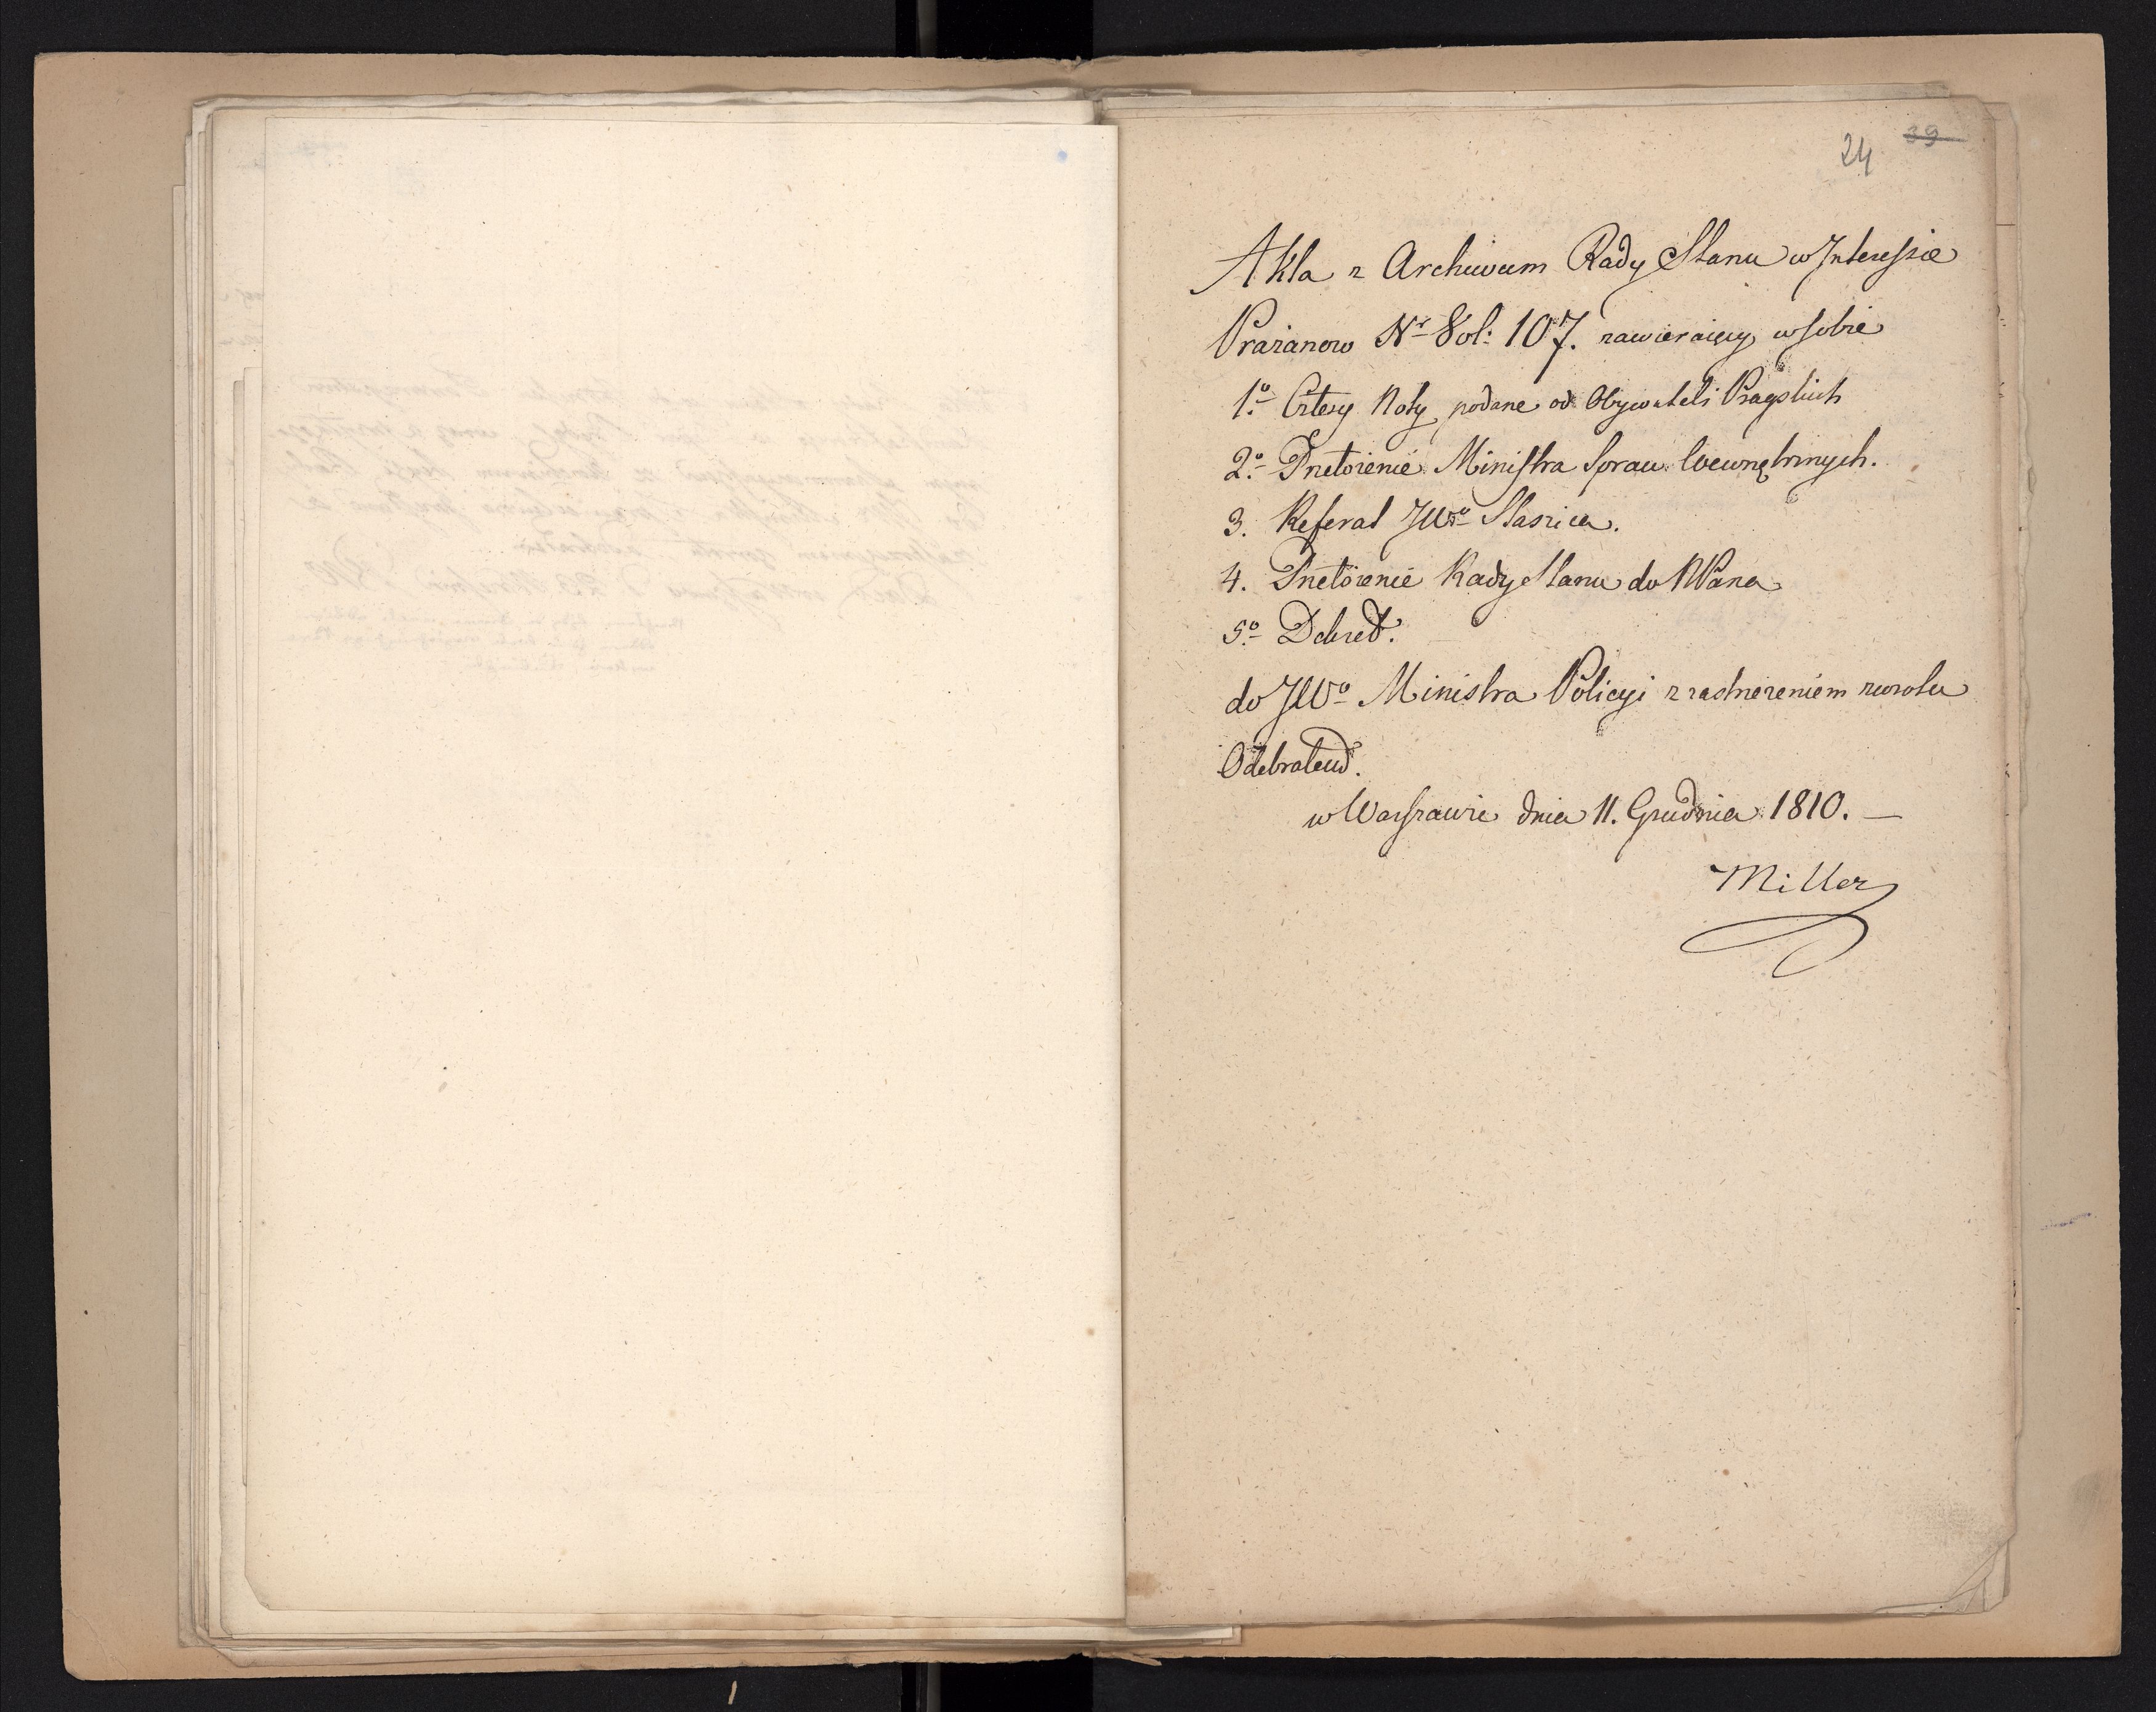 24 39
Akta z Archiwum Rady Stanu w Interessie
Prażanow Nr Vol: 107. zawieraięcy w sobie
1o. Cztery Noty podane od Obywateli Pragskich
2o. Przełożenie Ministra Spraw Wewnętrznych.
3. Referat JWo Staszica.
4. Przełożenie Rady Stanu do NPana
5o. Dekret.
do JWo Ministra Policyi z zastrzeżeniem zwrotu
Odebrałem.
w Warszawie dnia 11. Grudnia 1810. —
Miller